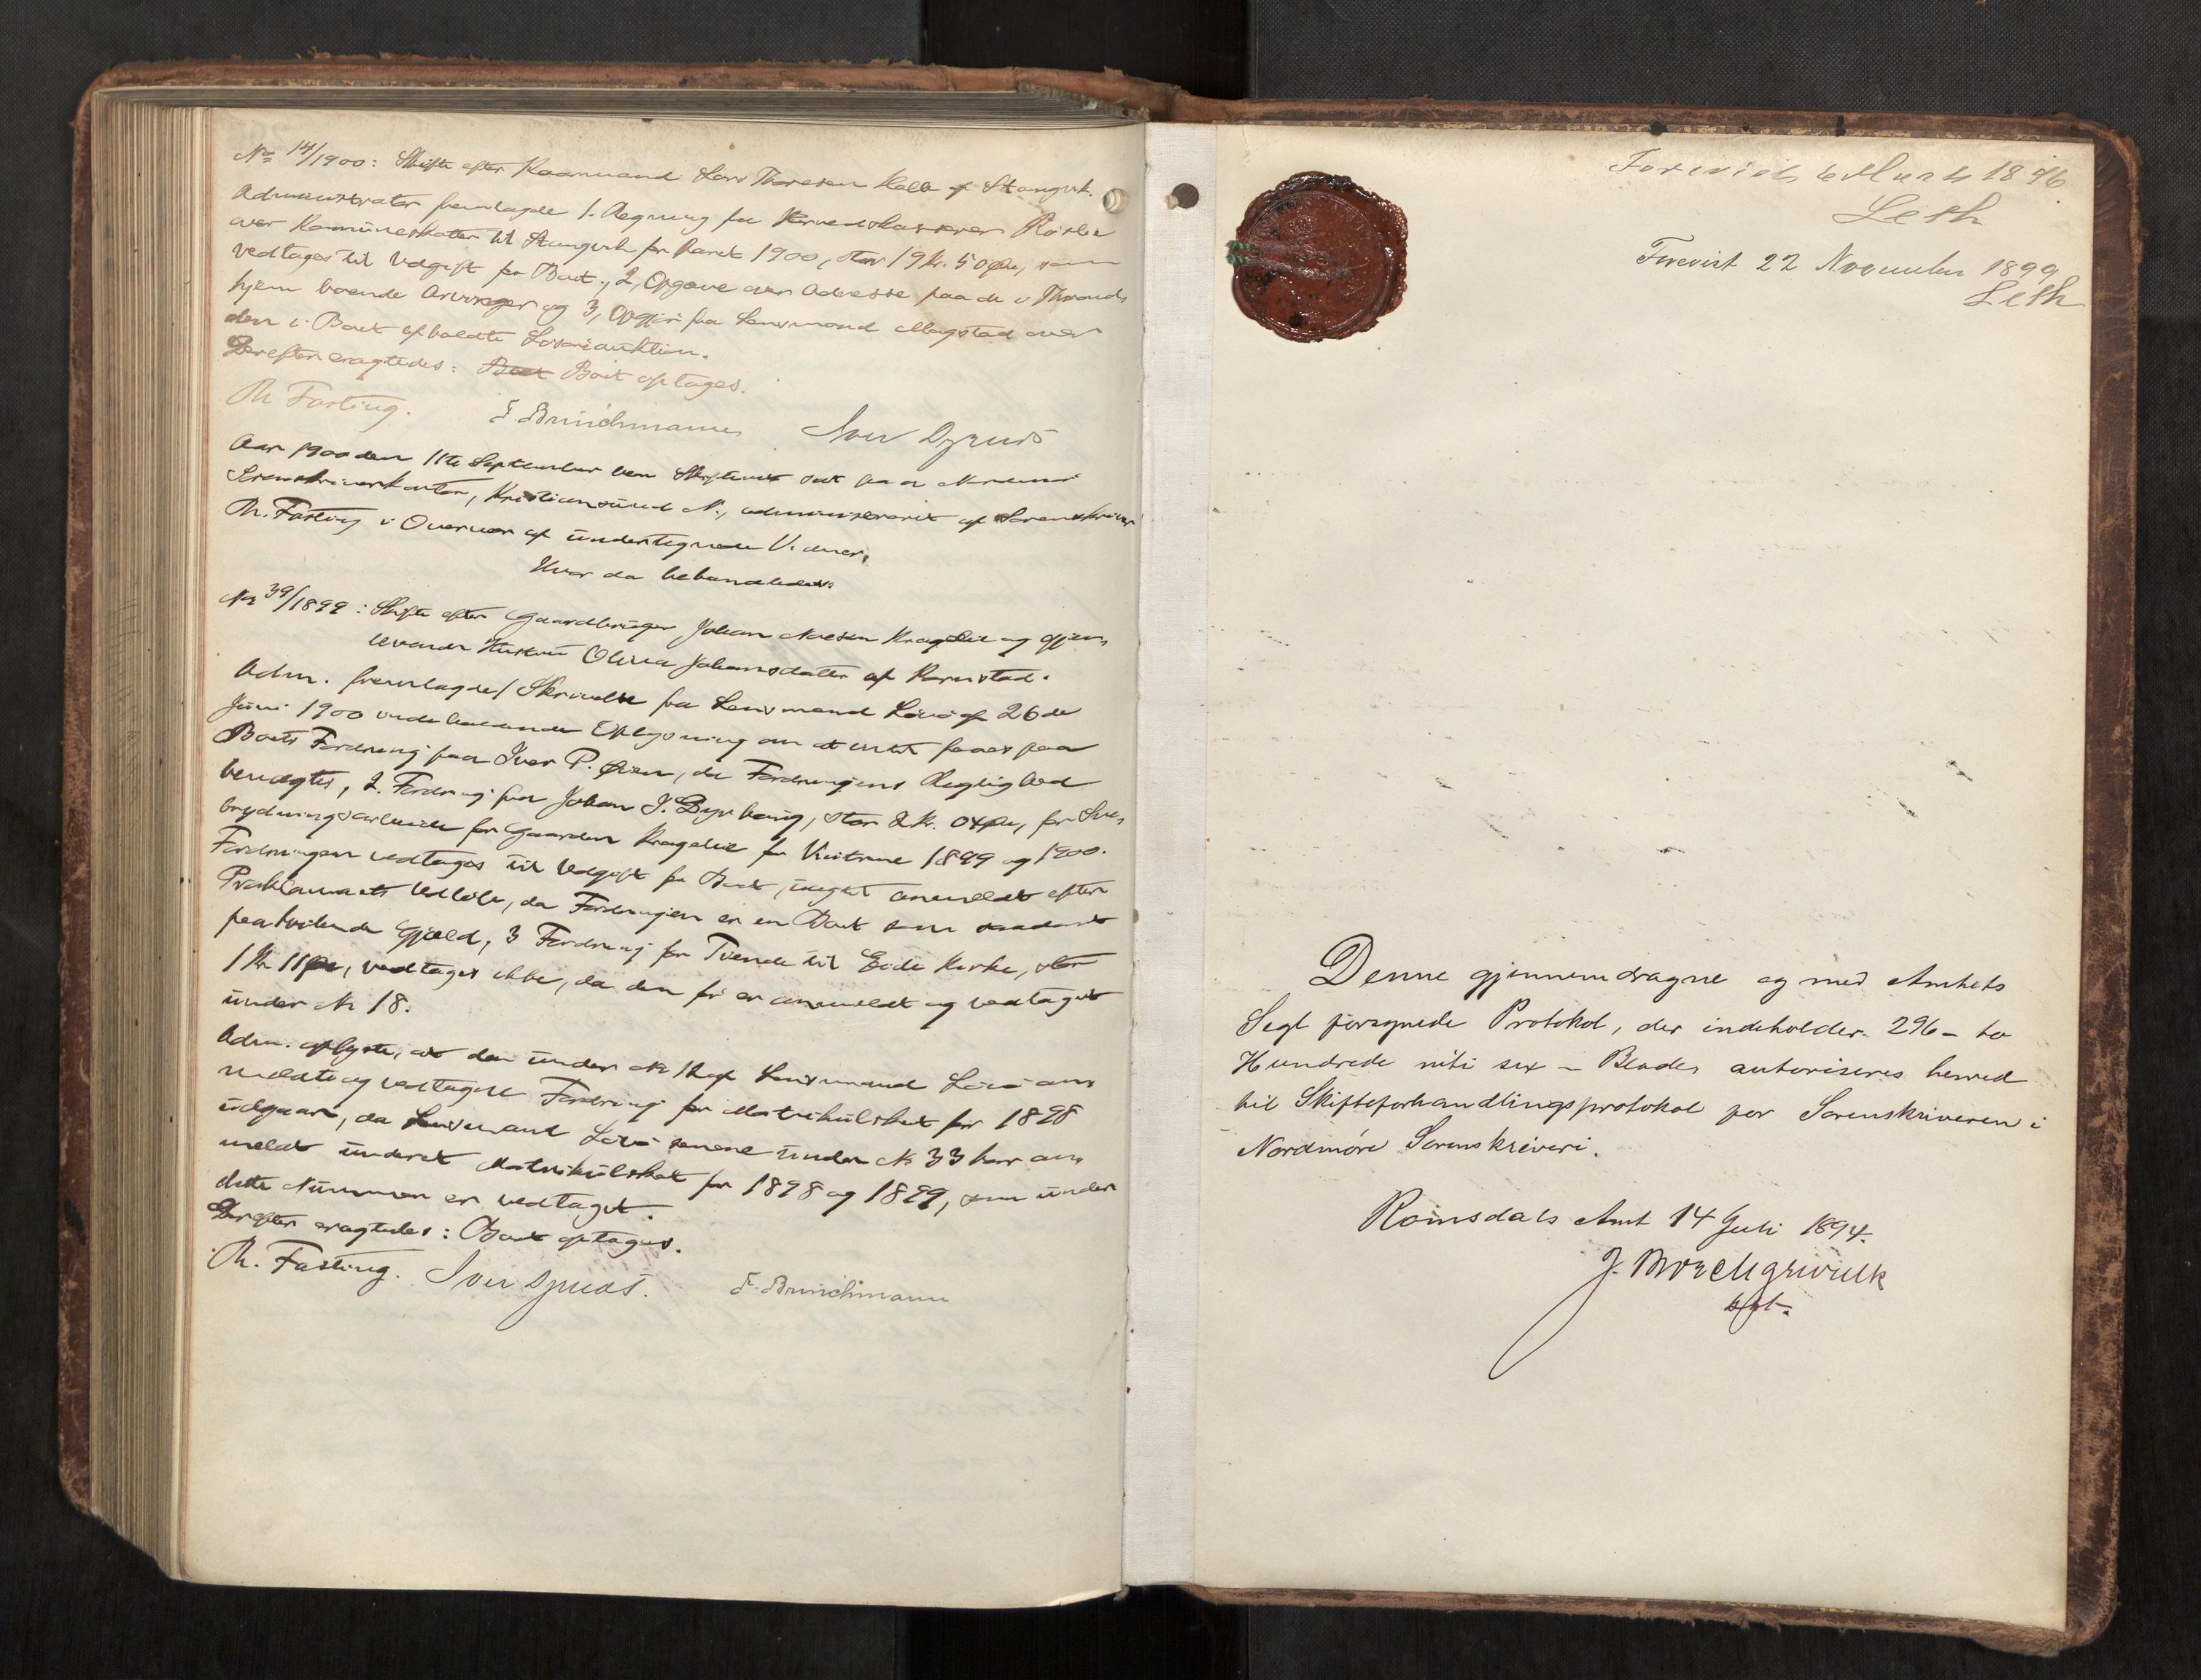 No 14/1900: Skifte efter Kaarmand Lars Thoresen Halle af Stangvik.
Administrator fremlagde 1. Regning fra Herredskasserer
over Kommuneskatter til Stangvik for Aaret 1900, stor 19 Kr. 50 Øre, som
vedtages til Udgift for Boet., 2, Opgave over Adresse paa de i Thrond,
hjem boende Arvinger og 3, Opgjör fra Lensmand Mogstad over
den i Boet afholdte Lösöreauktion.
Derefter eragtedes: Boet Boet optages.
Th Fasting. F Brinchmann Iver
Aar 1900 den 11te September blev Skifteret sat paa Nordmøre
Sorenskriverkontor, Kristiansund N., administreret af Sorenskriver
Th. Fasting i Overvær af undertegnede Vidner.
Hvor da behandledes:
No 39/1899: Skifte efter Gaardbruger Johan Kragelie og gjen,
levende Hustru Olina Johansdatter af
Adm. fremlagde 1 Skrivelse fra Lensmand Lövö af 26de
Juni 1900 indeholdende Oplysning om at intet faaes paa
Boets Fordring paa Iver P. Øien, da Fordringens Rigtighed
benægtes, 2. Fordring fra Johan J. Dyrhaug, stor 2 Kr. 04 Øre, for Sne,
brydningsarbeide for Gaarden Kragelie for Vintrene 1899 og 1900.
Fordringen vedtages til Udgift for Boet, uagtet anmeldt efter
Proklamaets Udlöb, da Fordringen er en Boet som saadant
paahvilende Gjæld, 3 Fordring for Tiende til Eide Kirke, stor
1 Kr 11 Øre, vedtages ikke, da den för er anmeldt og vedtaget
under No 18.
Adm. oplyste, at den under No 12 af Lensmand Lövö an,
meldte og vedtagne Fordring for Matrikulskat for 1898
udgaar, da Lensmand Lövö senere under No 33 har an,
meldt underet Matrikulskat for 1898 og 1899, som under
dette Nummer er vedtaget.
Derefter eragtedes: Boet optages.
Th. Fasting. Iver F. Brinchmann
Forevist 6 Marts 1896
Leth
Forevist 22 November 1899
Leth
Denne gjennemdragne og med Amtets
Segl forsynede Protokol, der indeholder 296 - to
Hundrede niti sex - Blade, autoriseres herved
til Skifteforhandlingsprotokol for Sorenskriveren i
Nordmöre Sorenskriveri.
Romsdals Amt 14 Juli 1894.
J. Borchgrevink
kst.